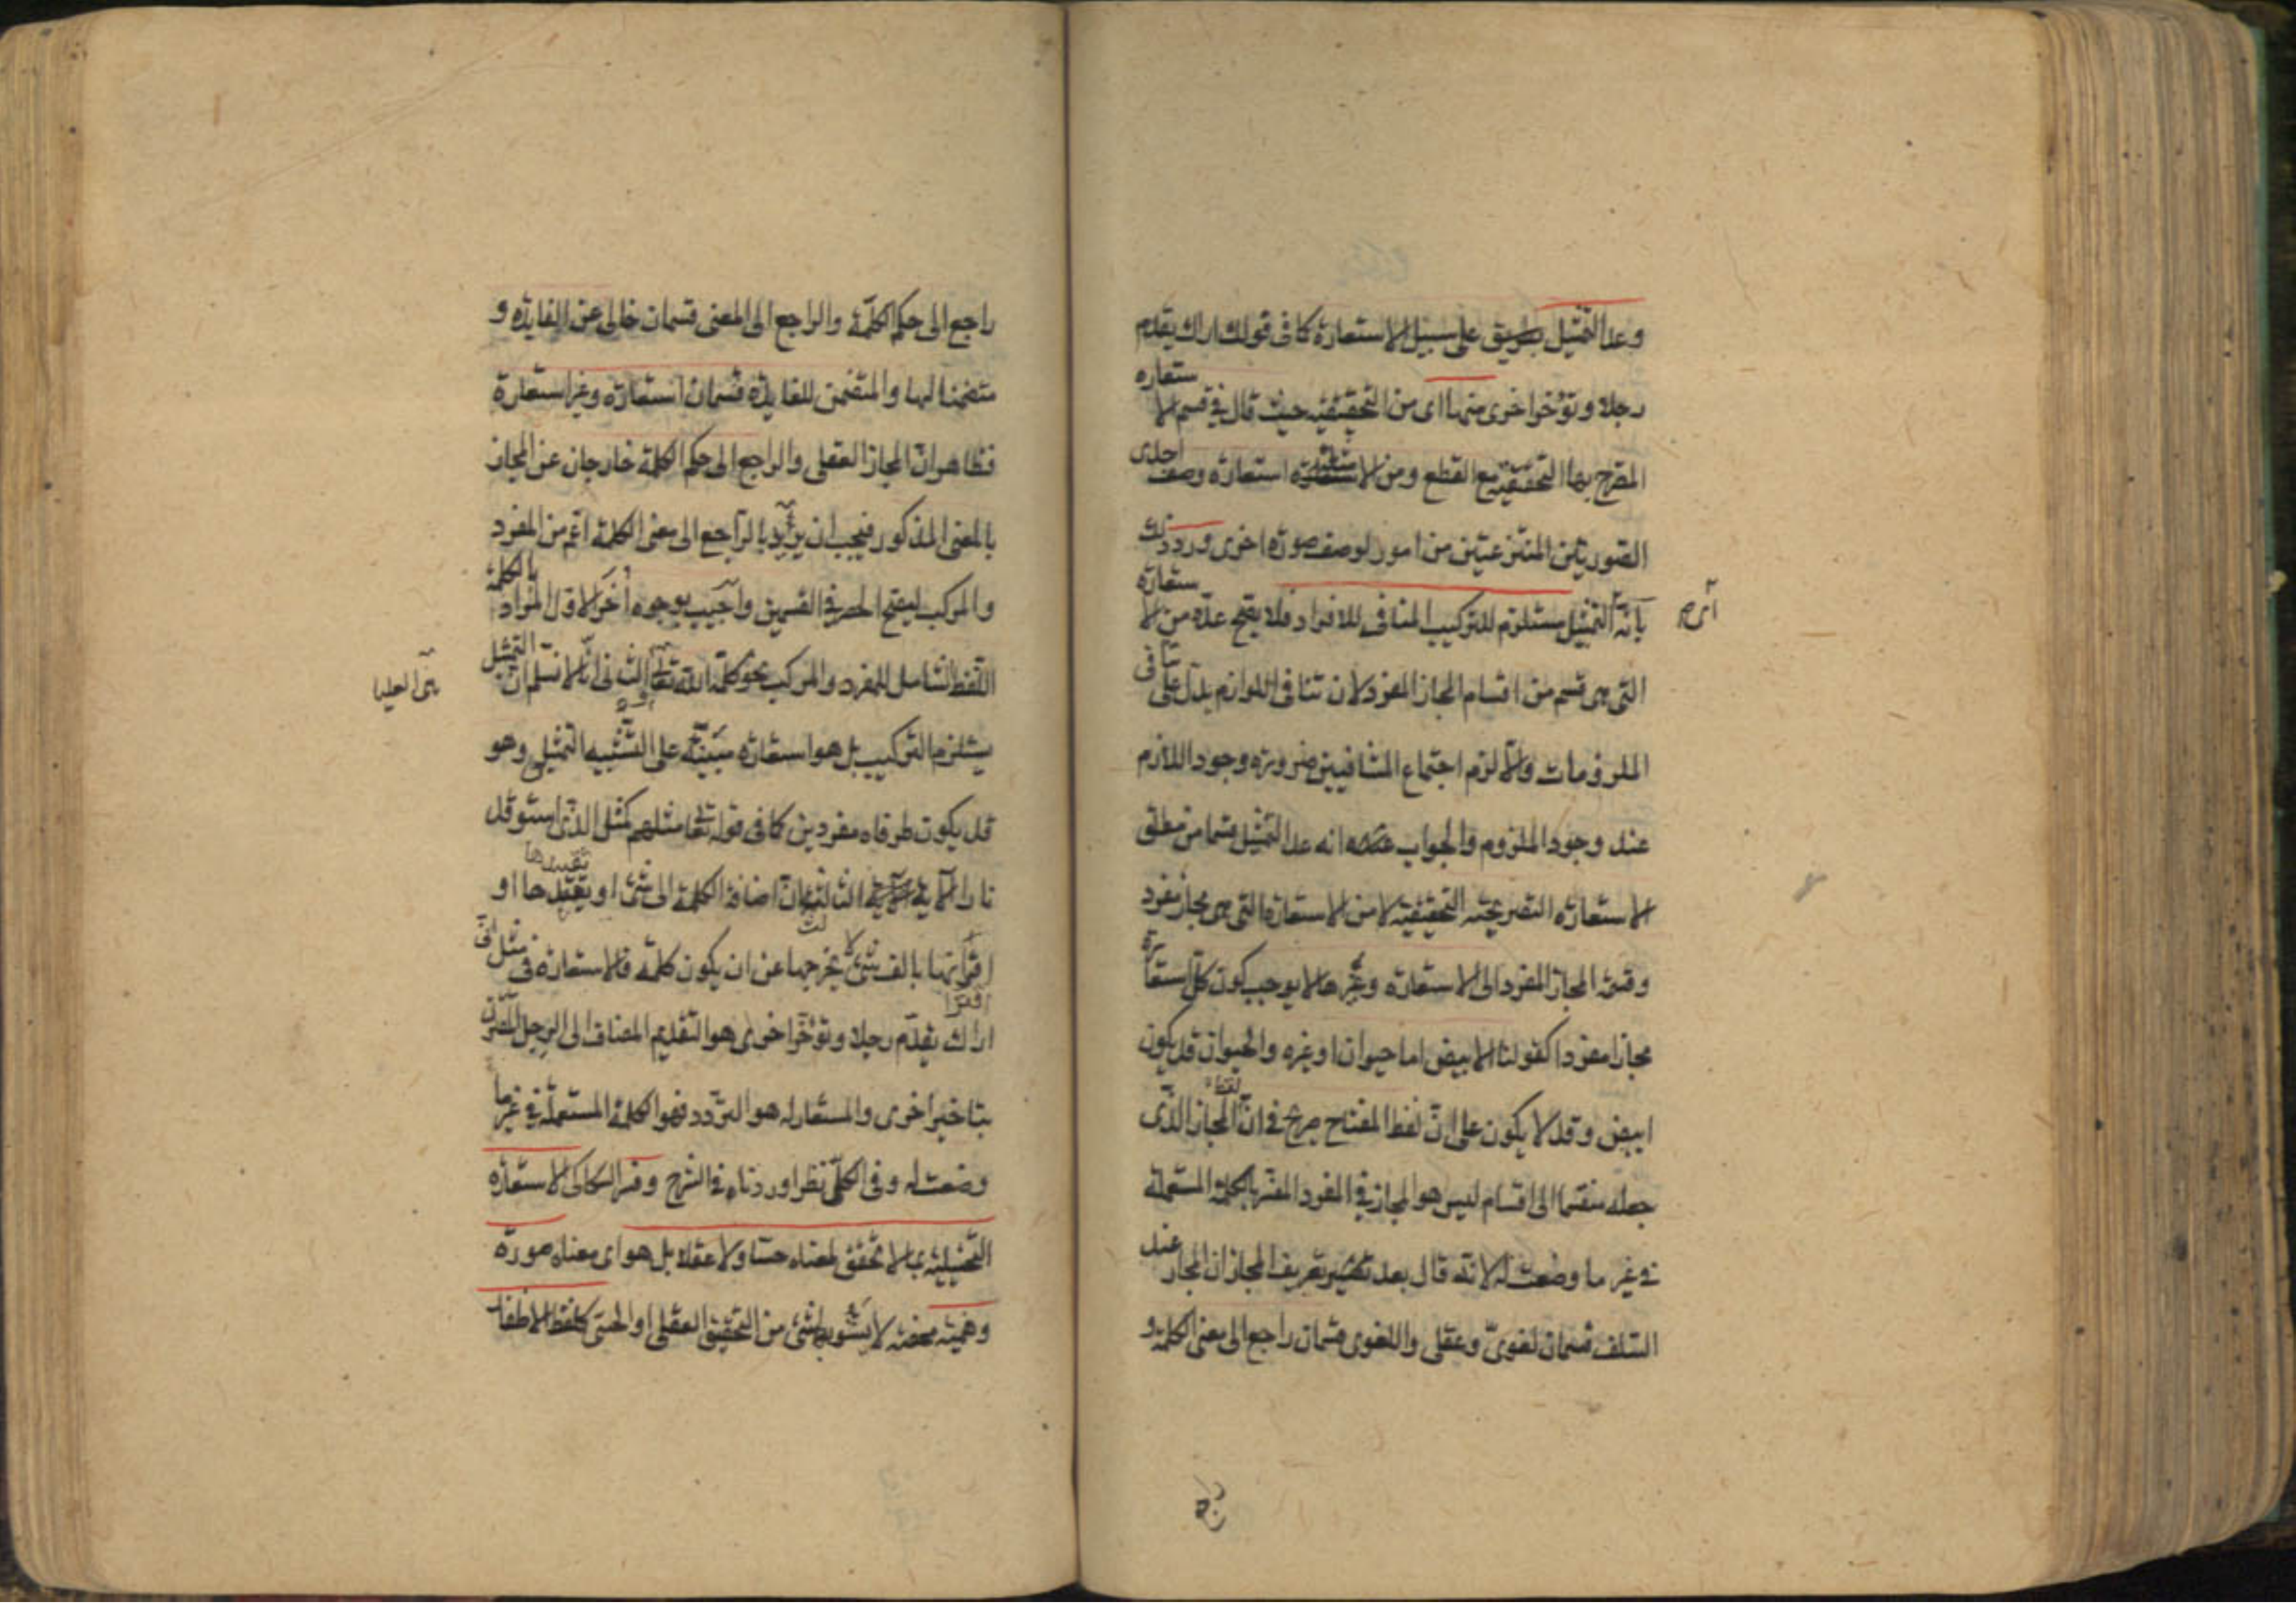 وعد التمثيل بطريق على سبيل الاستعارة كما في قولك اراك تقدم
رجلا وتؤخر اخرى منها اى من التحقيقية حيث قال في قسم الاستعاره
المصرح بها التحقيقية مع القطع ومن الامثلة استعارة وصف احدى
الصورتين المنتزعتين من امور لوصف صورة اخرى ورد ذلك
بانه اى التمثيل مستلزم للتركيب المنافى للافراد فلا يصح عده من الاستعارة
التى هى قسم من اقسام المجاز المفرد لان تنافى اللوازم يدل على تنافى
الملزومات والا لزم اجتماع المتنافيين ضرورة وجود اللازم
عند وجود الملزوم والجواب انه عد التمثيل قسما من مطلق
الاستعارة التصريحية التحقيقية لا من الاستعارة التى هى مجاز مفرد
وقسمة المجاز المفرد الى الاستعارة وغيرها لا يوجب كون كل استعارة
مجازا مفردا كقولنا الابيض اما حيوان او غيره والحيوان قد يكون
ابيض وقد لا يكون على ان لفظ المفتاح صريح في ان المجاز الذى
جعله منقسما الى اقسام ليس هو المجاز في المفرد المفسر بالكلمة المستعملة
في غير ما وضعت له لانه قال بعد تعريف المجاز ان المجاز عند
السلف قسمان لغوى وعقلى واللغوى قسمان راجع الى معنى الكلمة و
راجع الى حكم الكلمة والراجع الى المعنى قسمان خالى عن الفايده و
متضمنا لها والمتضمن للفايدة قسمان استعارة وغير استعارة
فظاهر ان المجاز العقلى والراجع الى حكم الكلمة خارجان عن المجاز
بالمعنى المذكور فيجب ان يريد بالراجع الى معنى الكلمة اعم من المفرد
والمركب ليصح الحصر في القسمين واجيب بوجوه اخر الاول المراد بالكلمة
اللفظ الشامل للمفرد والمركب نحو كلمة الله تعالى الثانى انا لا نسلم ان التمثيل
هى العليا
يستلزم التركيب بل هو استعارة مبنية على التشبيه التمثيلى وهو
قد يكون طرفاه مفردين كما في قوله تعالى مثلهم كمثل الذى استوقد
نارا الآية الثالث ان اضافة الكلمة الى شئ او تقييدها او
اقترانها بالف شئ لا يخرجها عن ان يكون كلمة فالاستعارة في مثل انى
اراك تقدم رجلا وتؤخر اخرى هو التقديم المضاف الى الرجل المقترن
بتاخير اخرى والمستعار له هو التردد فهو الكلمة المستعملة في غير ما
وضعت له وفى الكل نظر اوردناه في الشرح وفسر السكاكى الاستعارة
التخييلية بما لا تحقق لمعناه حسا ولا عقلا بل هو اى معناه صورة
وهمية محضة لا يشوبها شئ من التحقيق العقلى او الحسى كلفظ الاظفار